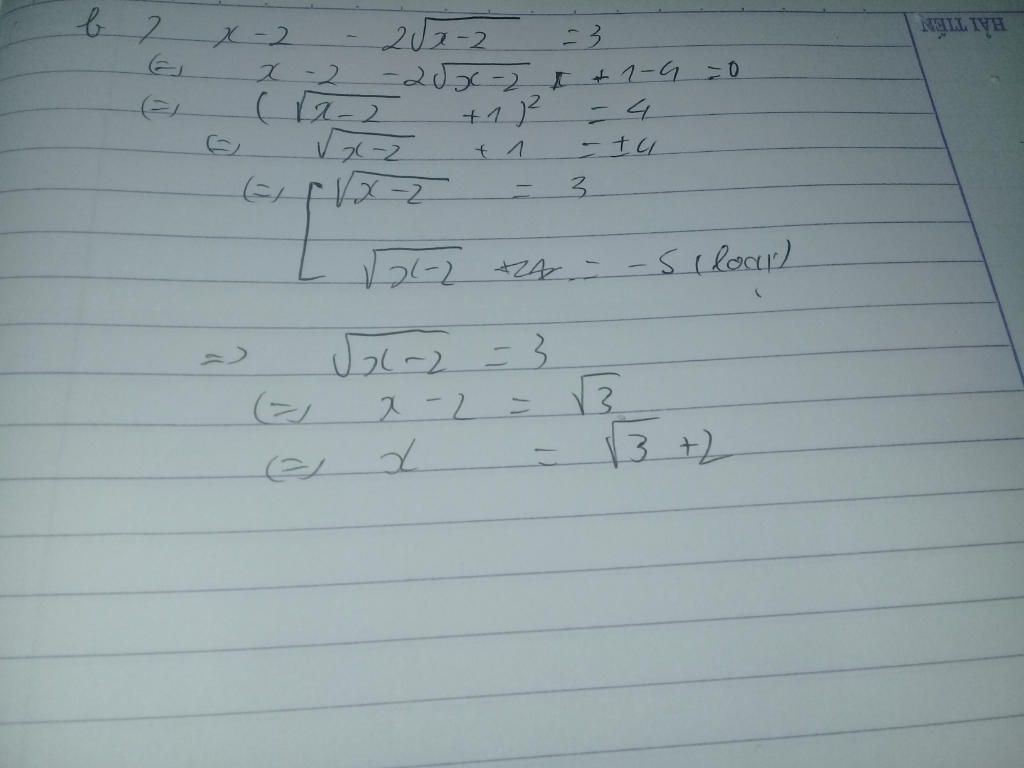 HẢI TIẾN
b) x - 2 - 2√(x-2) = 3
(=) x - 2 - 2√(x-2) + 1 - 4 = 0
(=) (√(x-2) + 1)² = 4
(=) √(x-2) + 1 = ±4
(=) [ √(x-2) = 3
√(x-2) = -5 (loại)
=> √(x-2) = 3
(=) x - 2 = √3
(=) x = √3 + 2